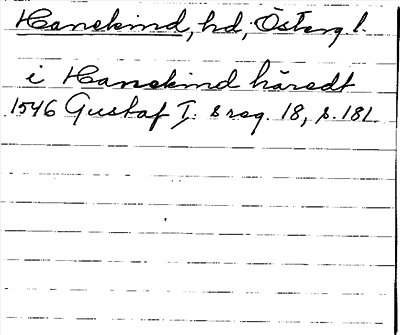 Hanekind, hd, Österg l.
i Hanekind häradt
1546 Gustaf I:s reg. 18, s. 181